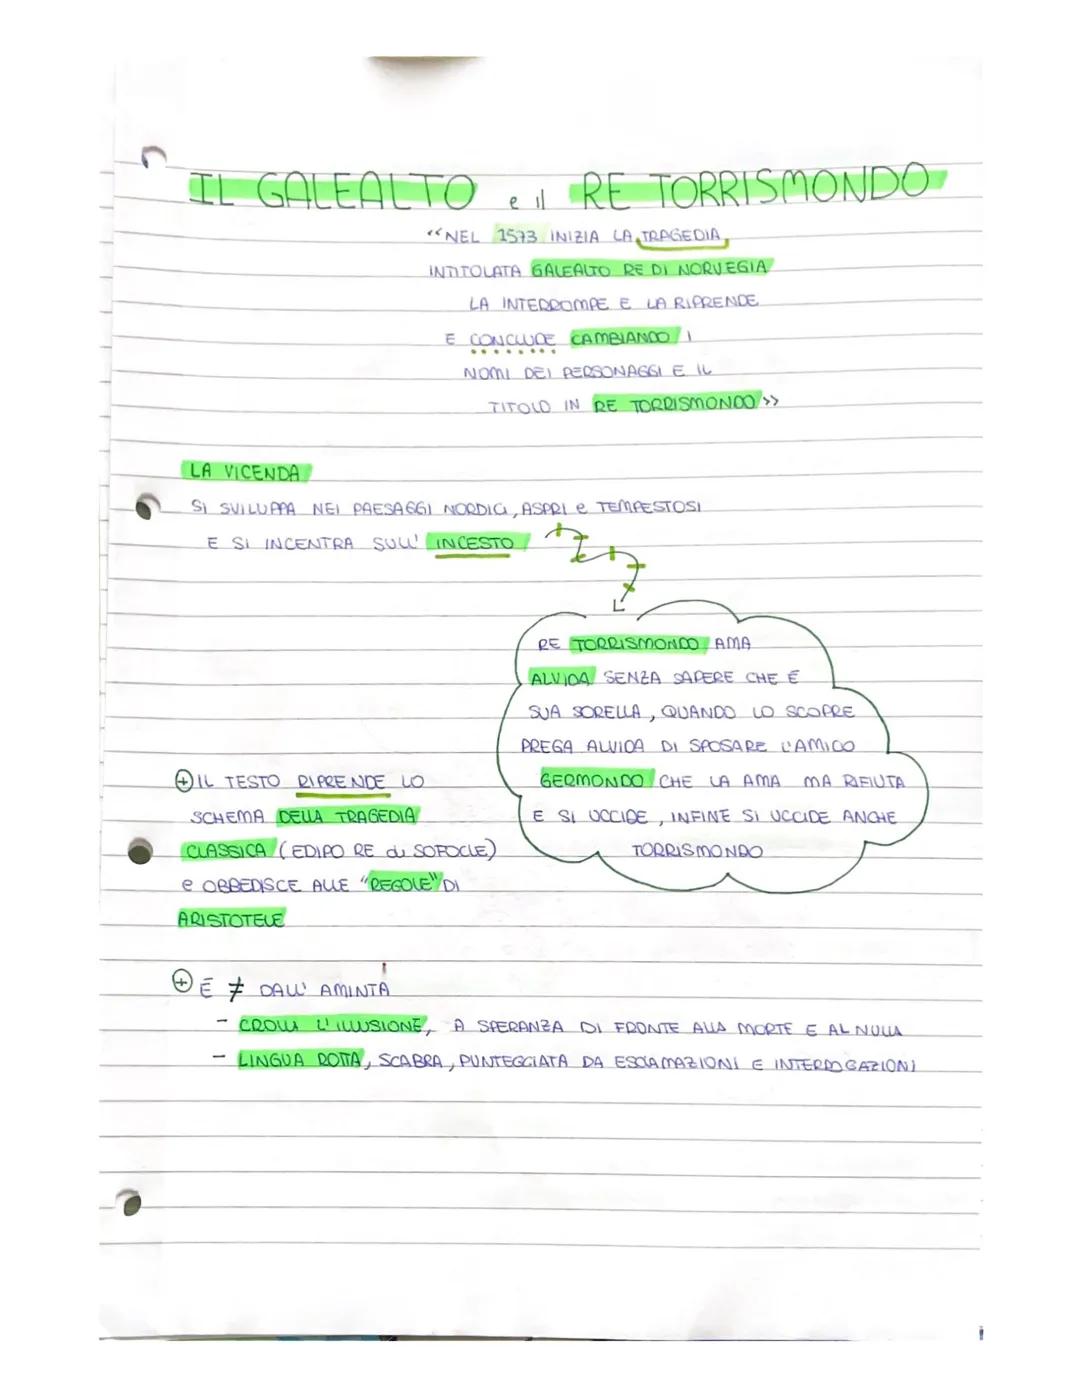 IL GALEALTO e il RE TORRISMONDO
“NEL 1573 INIZIA LA TRAGEDIA,
INTITOLATA GALEALTO RE DI NORVEGIA
LA INTERROMPE E LA RIPRENDE
E CONCLUDE CAMBIANDO I
NOMI DEI PERSONAGGI E IL
TITOLO IN RE TORRISMONDO >>
LA VICENDA
SI SVILUPPA NEI PAESAGGI NORDICI, ASPRI e TEMPESTOSI
E SI INCENTRA SULL' INCESTO
RE TORRISMONDO AMA
ALVIDA SENZA SAPERE CHE É
SUA SORELLA, QUANDO LO SCOPRE
PREGA ALVIDA DI SPOSARE L'AMICO
GERMONDO CHE LA AMA MA RIFIUTA
E SI UCCIDE, INFINE SI UCCIDE ANCHE
TORRISMONDO
+ IL TESTO RIPRENDE LO
SCHEMA DELLA TRAGEDIA
CLASSICA (EDIPO RE di SOFOCLE)
e OBBEDISCE ALLE “REGOLE” DI
ARISTOTELE
+ É ≠ DALL' AMINTA
- CROLLI L'ILLUSIONE, A SPERANZA DI FRONTE ALLA MORTE E AL NULLA
- LINGUA ROTTA, SCABRA, PUNTEGGIATA DA ESCLAMAZIONI E INTERROGAZIONI